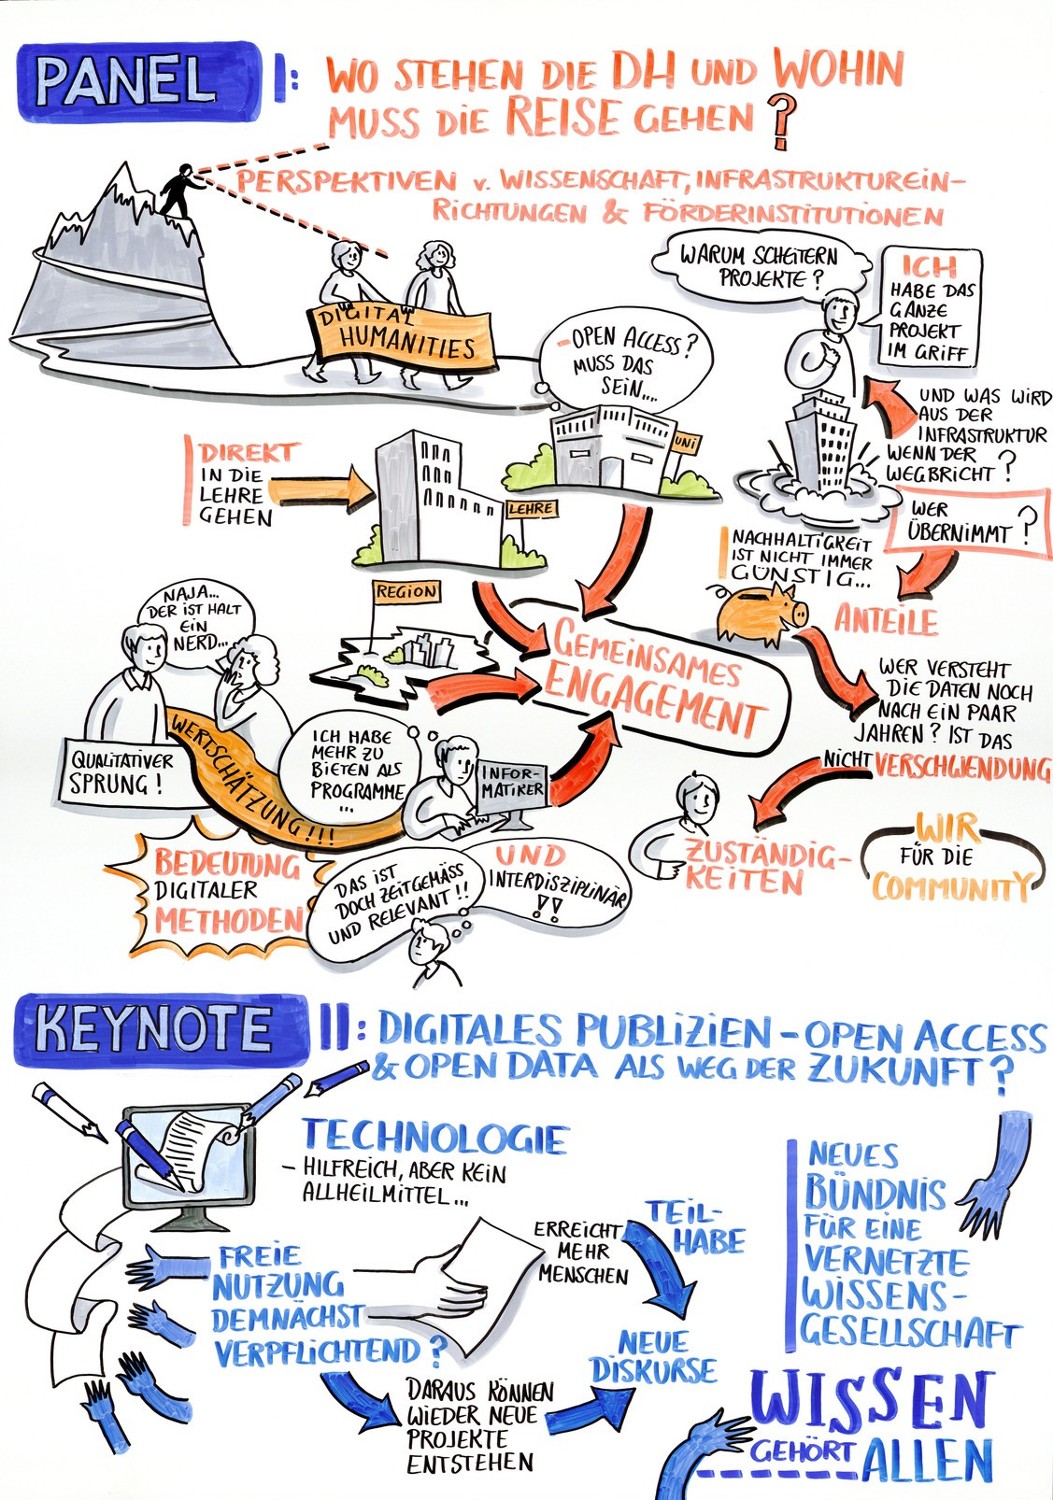 PANEL I:
WO STEHEN DIE DH UND WOHIN
MUSS DIE REISE GEHEN?
PERSPEKTIVEN v. WISSENSCHAFT, INFRASTRUKTUREIN-
RICHTUNGEN & FÖRDERINSTITUTIONEN
DIGITAL
HUMANITIES
-OPEN ACCESS?
MUSS DAS
SEIN....
WARUM SCHEITERN
PROJEKTE?
ICH
HABE DAS
GANZE
PROJEKT
IM GRIFF
UND WAS WIRD
AUS DER
INFRASTRUKTUR
WENN DER
WEGBRICHT?
WER
ÜBERNIMMT?
DIREKT
IN DIE
LEHRE
GEHEN
LEHRE
UNI
REGION
NACHHALTIGKEIT
IST NICHT IMMER
GÜNSTIG...
ANTEILE
GEMEINSAMES
ENGAGEMENT
WER VERSTEHT
DIE DATEN NOCH
NACH EIN PAAR
JAHREN? IST DAS
NICHT VERSCHWENDUNG
NAJA...
DER IST HALT
EIN
NERD...
QUALITATIVER
SPRUNG!
WERTSCHÄTZUNG!!!
ICH HABE
MEHR ZU
BIETEN ALS
PROGRAMME
...
INFOR-
MATIKER
BEDEUTUNG
DIGITALER
METHODEN
DAS IST
DOCH ZEITGEMÄSS
UND RELEVANT!!
UND
INTERDISZIPLINÄR
!!
ZUSTÄNDIG-
KEITEN
WIR
FÜR DIE
COMMUNITY
KEYNOTE II:
DIGITALES PUBLIZIEN - OPEN ACCESS
& OPEN DATA ALS WEG DER ZUKUNFT?
TECHNOLOGIE
- HILFREICH, ABER KEIN
ALLHEILMITTEL...
FREIE
NUTZUNG
DEMNÄCHST
VERPFLICHTEND?
ERREICHT
MEHR
MENSCHEN
TEIL-
HABE
NEUE
DISKURSE
DARAUS KÖNNEN
WIEDER NEUE
PROJEKTE
ENTSTEHEN
NEUES
BÜNDNIS
FÜR EINE
VERNETZTE
WISSENS-
GESELLSCHAFT
WISSEN
GEHÖRT ALLEN